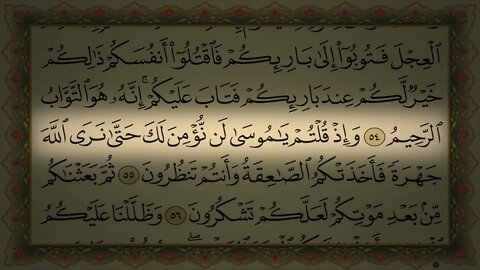 ٱلۡعِجۡلَ فَتُوبُوٓاْ إِلَىٰ بَارِئِكُمۡ فَٱقۡتُلُوٓاْ أَنفُسَكُمۡ ذَٰلِكُمۡ
خَيۡرٞ لَّكُمۡ عِندَ بَارِئِكُمۡ فَتَابَ عَلَيۡكُمۡۚ إِنَّهُۥ هُوَ ٱلتَّوَّابُ
ٱلرَّحِيمُ ٥٤ وَإِذۡ قُلۡتُمۡ يَٰمُوسَىٰ لَن نُّؤۡمِنَ لَكَ حَتَّىٰ نَرَى ٱللَّهَ
جَهۡرَةٗ فَأَخَذَتۡكُمُ ٱلصَّٰعِقَةُ وَأَنتُمۡ تَنظُرُونَ ٥٥ ثُمَّ بَعَثۡنَٰكُم
مِّنۢ بَعۡدِ مَوۡتِكُمۡ لَعَلَّكُمۡ تَشۡكُرُونَ ٥٦ وَظَلَّلۡنَا عَلَيۡكُمُ